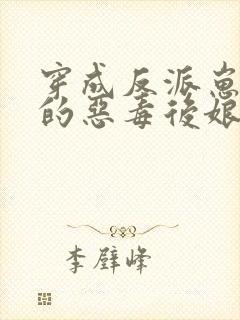 穿成反派崽
的惡毒後娘
李壁峰